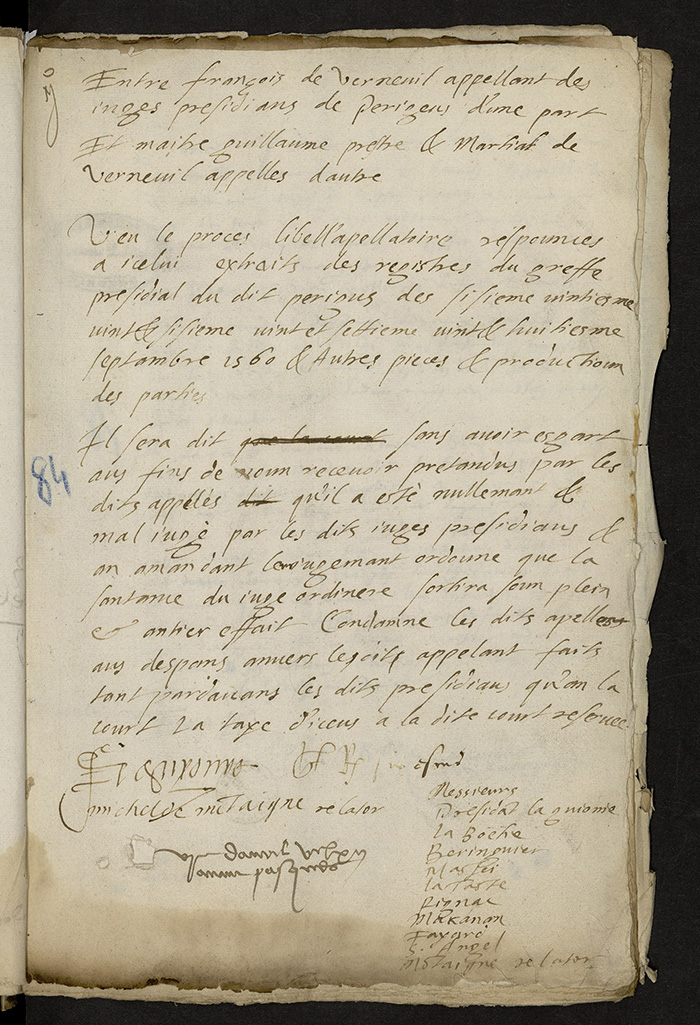 Entre françois de verneuil appellant des
iuges presidiaus de perigeus d'une part
Et maitre guillaume prestre & Martial de
verneuil appelles d'autre
Veu le proces libell'apellatoire responnces
a icelui extraits des registres du greffe
presidial du dit perigus des sisieme vintiesme
vint& sisieme vint et settieme vint& huitiesme
septambre 1560 & Autres pieces & productioun
des parties
Il sera dit sans avoir esgart
aus fins de noun recevoir pretandus par les
dits appelés dit qu'il a esté nullemant &
mal iugé par les dits iuges presidiaus &
an amandant le iugemant ordoune que la
santance du iuge ordinere sortira soun plein
& antier effait Condamne les dits apelles
aus despans anvers les dits appelant faits
tant pardavans les dits presidiaus qu'an la
court La taxe d'iceus a la dite court reservee
michel de montaigne relator
Messieurs
President la guionie
la Boetie
Beringuier
Massei
la taste
Rignac
Makanan
Fayard
E. Angel
Motaigne relator
84